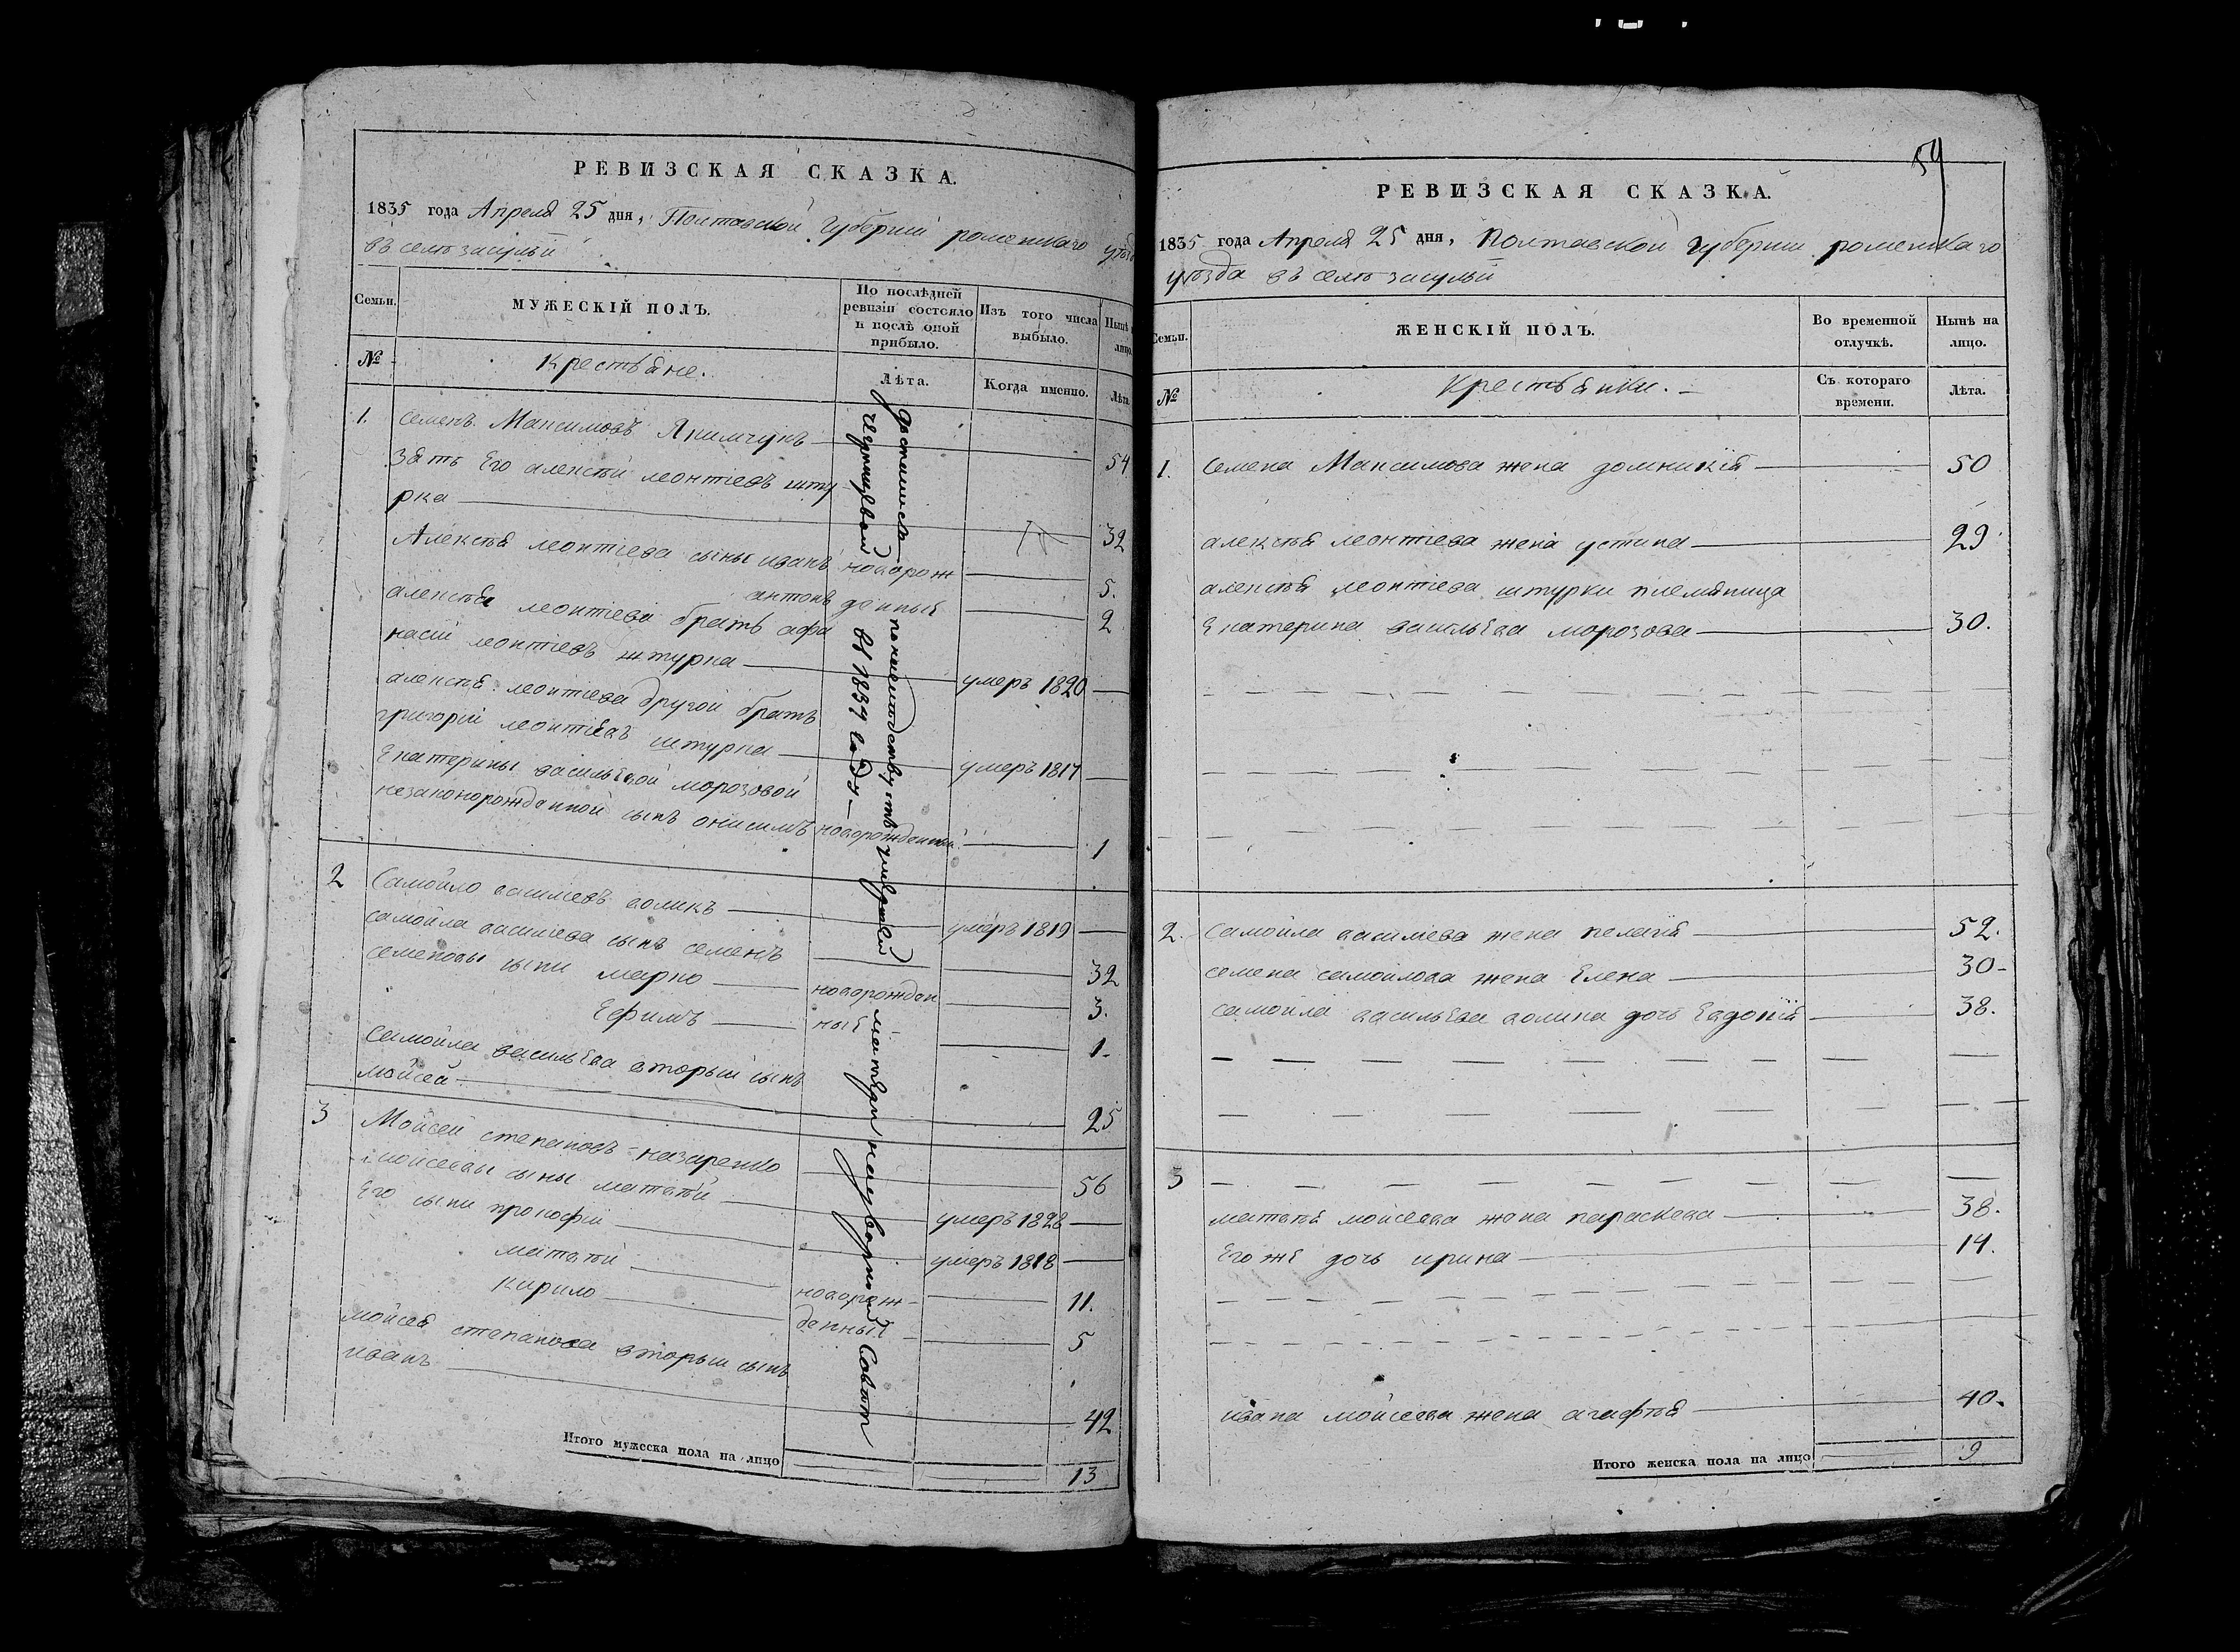 РЕВИЗСКАЯ СКАЗКА.
1835 года Апреля 25 дня, Полтавской Губернии роменкаго уѣзда
въ селѣ засульи
Семьи.
МУЖЕСКІЙ ПОЛЪ.
По послѣдней ревизіи состояло и послѣ оной прибыло.
Изъ того числа выбыло.
Нынѣ на лицо.
№
Крестьяне.
Лѣта.
Когда именно.
Лѣта.
1. Семенъ Максимовъ Якимчукъ 54
зять Его алексѣй леонтіевъ шту
рка 32
Алексѣя леонтіева сыны иванъ новорож 5.
антонъ денныя 2
алексѣя леонтіева братъ афа
насій леонтіевъ штурка умеръ 1820
алексѣя леонтіева другой братъ
григорій леонтіевъ штурка умеръ 1817
Екатерины васильевой морозовой
незаконорожденной сынъ онисимъ новорожденный 1
2 Самойло василіевъ воликъ умеръ 1819
самойла василіева сынъ семенъ 32
семеновы сыни марко новорожден 3.
Ефимъ ные 1.
самойла васильева вторый сынъ
мойсей 25
3 Мойсей степановъ назаренко 56
мойсеевы сыны матвѣй умеръ 1828
Его сыни прокофій умеръ 1818
матвѣй новорож 11.
кирило денныя 5
мойсея степанова вторый сынъ
иванъ 42
Итого мужеска пола на лицо 13
достались по наслѣдству отъ умершей матери надворной Совѣт
въ 1834 году
59
РЕВИЗСКАЯ СКАЗКА.
1835 года Апреля 25 дня, Полтавской губерніи роменкаго
уѣзда въ селѣ засульи
Семьи.
ЖЕНСКІЙ ПОЛЪ.
Во временной отлучкѣ.
Нынѣ на лицо.
№
Крестьянки.
Съ котораго времени.
Лѣта.
1. Семена Максимова жена домникія 50
алексѣя леонтіева жена устина 29
алексѣя леонтіева штурки племяница
Екатерина васильева морозова 30.
2. Самойла василіева жена пелагія 52.
семена самойлова жена Елена 30
самойла васильева волика дочь Евдокія 38.
3
матвѣя мойсеева жена параскева 38.
Его же дочь ирина 14.
ивана мойсеева жена агафія 40.
Итого женска пола на лицо 9